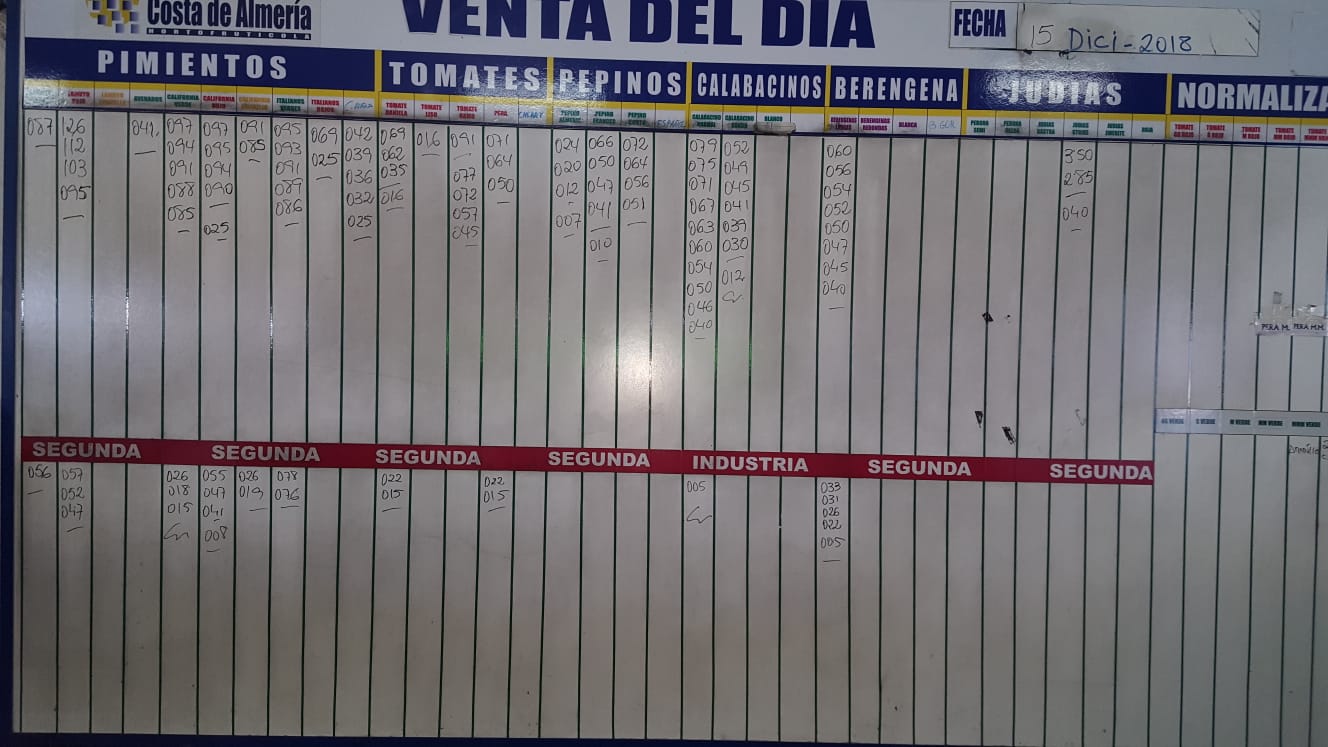 Costa de Almería
HORTOFRUTICOLA
VENTA DEL DIA
FECHA 15 Dici - 2018
PIMIENTOS TOMATES PEPINOS CALABACINOS BERENGENA JUDIAS NORMALIZA
LAMUYO ROJO CALIFORNIA VERDE CALIFORNIA ROJO ITALIANOS VERDES ITALIANOS ROJOS TOMATE DANIELA TOMATE LISO TOMATE RAMO PERA CHERRY PEPINO ALMERIA PEPINO FRANCES PEPINO CORTO ESPAÑOL CALABACINO NORMAL CALABACINO GORDO BLANCO BERENGENAS LARGAS BERENGENAS REDONDAS BLANCA PERONA SEMI PERONA ROJA JUDIAS RASTRA JUDIAS STRIKE JUDIAS EMERITE ROJO
087 126 042 097 097 091 095 069 042 069 016 091 071 024 066 072 079 052 060 350
112 094 095 085 093 025 039 062 077 064 020 050 064 075 049 056 285
103 091 094 091 036 035 072 050 012 047 056 071 045 054 040
095 088 090 089 032 016 057 007 041 051 067 041 052
085 025 086 025 045 010 063 039 050
060 030 047
054 012 045
050 040
046
040
PERA M. PERA M.M.
GG VERDE G VERDE M VERDE MM VERDE MMM VERDE
SEGUNDA SEGUNDA SEGUNDA SEGUNDA INDUSTRIA SEGUNDA SEGUNDA
056 057 026 055 026 078 022 022 005 033
052 018 047 019 076 015 015 031
047 015 041 026
008 022
005